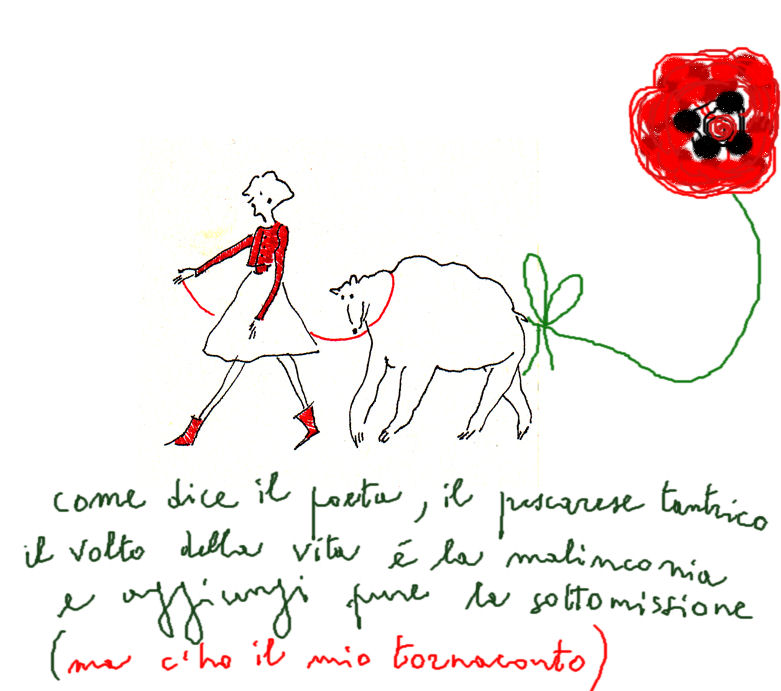 come dice il poeta, il pescarese tantrico
il volto della vita é la malinconia
e aggiungi pure la sottomissione
(ma c'ho il mio tornaconto)